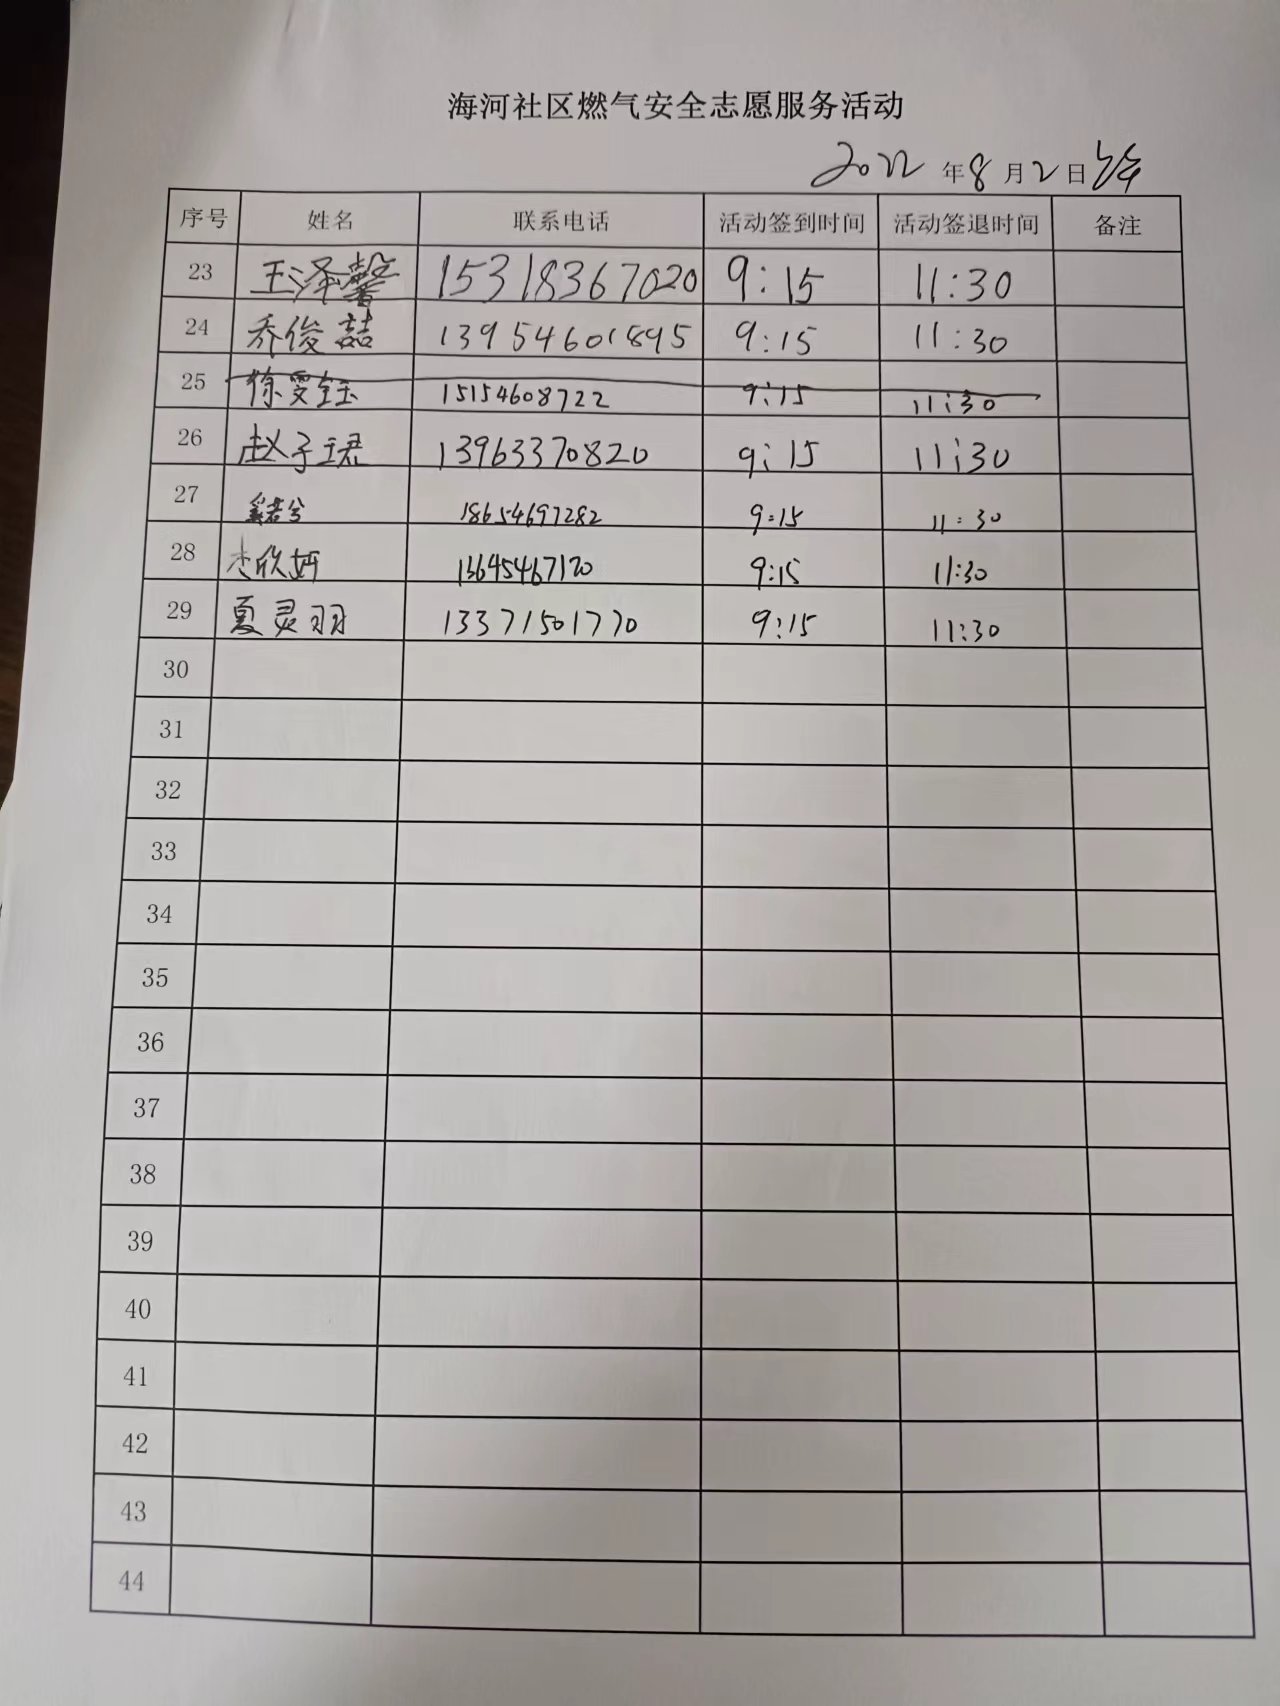 海河社区燃气安全志愿服务活动
2022年8月2日
序号 姓名 联系电话 活动签到时间 活动签退时间 备注
23 王泽馨 15318367020 9:15 11:30
24 乔俊喆 13954601895 9:15 11:30
25 徐雯钰 15154608722 9:15 11:30
26 赵子珺 13963370820 9:15 11:30
27 18654697282 9:15 11:30
28 欣妍 13645467120 9:15 11:30
29 夏灵羽 13371501770 9:15 11:30
30
31
32
33
34
35
36
37
38
39
40
41
42
43
44